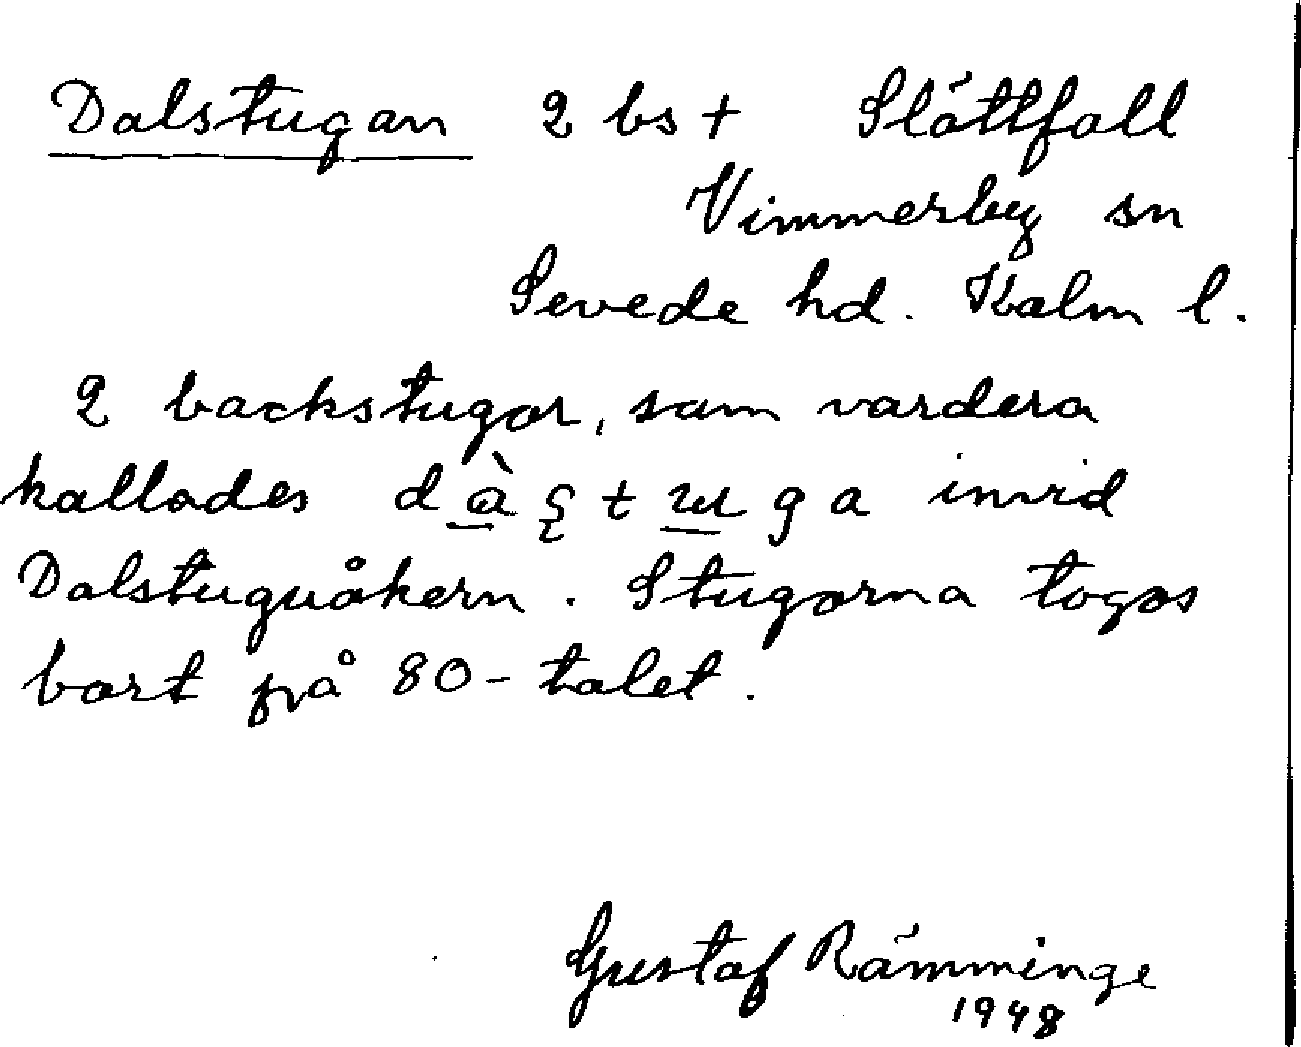 Dalstugan 2 bs † Slättfall
Vimmerby sn
Sevede hd. Kalm l.
2 backstugor, som vardera
kallades dàʂtuga invid
Dalstuguåkern. Stugorna togos
bort på 80-talet.
Gustaf Rämminge
1948